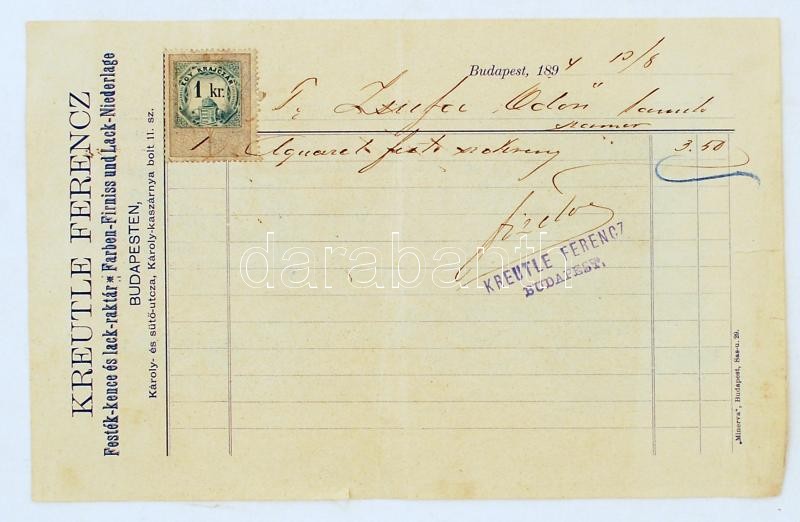 KREUTLE FERENCZ
Festék-kence és lack-raktár * Farben-Firniss und Lack-Niederlage
BUDAPESTEN,
Károly- és sütő-utcza, Károly-kaszárnya bolt 11. sz.
EGY KRAJCZÁR
1 kr.
1
Budapest, 1894 10/8
T. Zsufa Ödön
Aquarel festék szekrény 3.50
fizetve
KREUTLE FERENCZ
BUDAPEST.
darabanth
„Minerva", Budapest, Sas-u. 29.